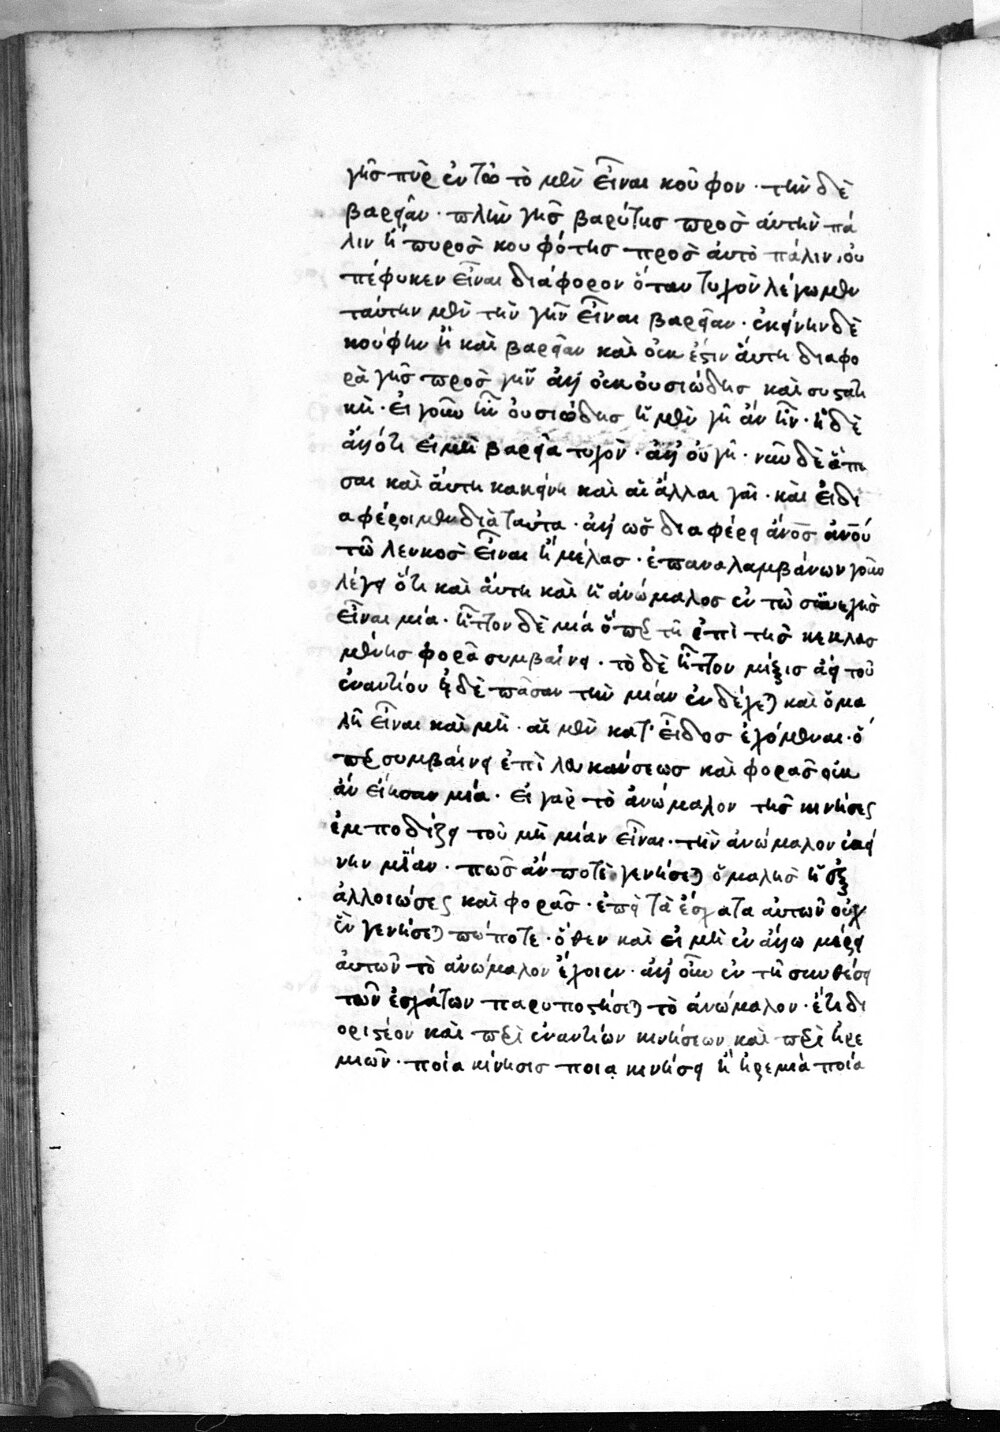 γῆς πῦρ ἐν τῶ τὸ μὲν εἶναι κοῦφον · τὴν δὲ
βαρεῖαν · πλὴν γῆς βαρύτης πρὸς αὐτὴν πά
λιν ἢ πυρὸς κουφότης πρὸς αὐτὸ πάλιν, οὐ
πέφυκεν εἶναι διάφορον ὅταν τυχὸν λέγωμεν
ταύτην μὲν τὴν γῆν εἶναι βαρεῖαν · ἐκείνην δὲ
κούφην ἢ καὶ βαρεῖαν καὶ οὐκ ἔστιν αὕτη διαφο
ρὰ γῆς πρὸς γῆν ἀλλ' οὐκ οὐσιώδης καὶ συστατι
κή · εἰ γοῦν ἦν οὐσιώδης ἡ μὲν γῆ ἂν ἦν · ἡ δὲ
ἀλλ' ὅτι εἰ μὴ βαρεῖα τυχὸν · ἀλλ' οὐ γῆ · νῦν δὲ ἅπα
σαι καὶ αὕτη κακείνη καὶ αἱ ἄλλαι γαῖ · καὶ εἰ δι
αφέροιμεν διὰ ταῦτα · ἀλλ' ὡς διαφέρει ἄνος ἀνου
τῶ λευκὸς εἶναι ἢ μέλας · ἐπαναλαμβάνων γοῦν
λέγει ὅτι καὶ αὕτη καὶ ἡ ἀνώμαλος ἐν τῶ συνεχὴς
εἶναι μία · ἧττον δὲ μία ὅπερ τῆ ἐπὶ τῆς κεκλας
μένης φορᾶ συμβαίνει · τὸ δὲ ἧττον μίξις ἀεὶ τοῦ
ἐναντίου εἰ δὲ πᾶσαν τὴν μίαν ἐνδέχεται καὶ ὁμα
λῆ εἶναι καὶ μὴ · αἱ μὲν κατ' εἶδος ἐχόμεναι · ὅ
περ συμβαίνει ἐπὶ λευκάνσεως καὶ φορᾶς οὐκ
ἂν εἴησαν μία · εἰ γὰρ τὸ ἀνώμαλον τῆς κινήσεως
ἐμποδίζει τοῦ μὴ μίαν εἶναι · τὴν ἀνώμαλον ἐκεί
νην μίαν · πῶς ἄν ποτε γενήσεται ὁμαλὴς ἡ ἐξ
ἀλλοιώσεως καὶ φορᾶς · ἐπεὶ τὰ ἔσχατα αὐτῶν οὐχ
ἓν γενήσεται πώποτε · ὅθεν καὶ εἰ μὴ ἐν ἄλλω μέρει
αὐτῶν τὸ ἀνώμαλον ἔχοιεν · ἀλλ' οὖν ἐν τῆ συνθέσει
τῶν ἐσχάτων παρυποστήσεται τὸ ἀνώμαλον · ἔτι δι
οριστέον καὶ περὶ ἐναντίων κινήσεων καὶ περὶ ἠρε
μιῶν · ποία κίνησις ποια κινήσει ἢ ἠρεμία ποία